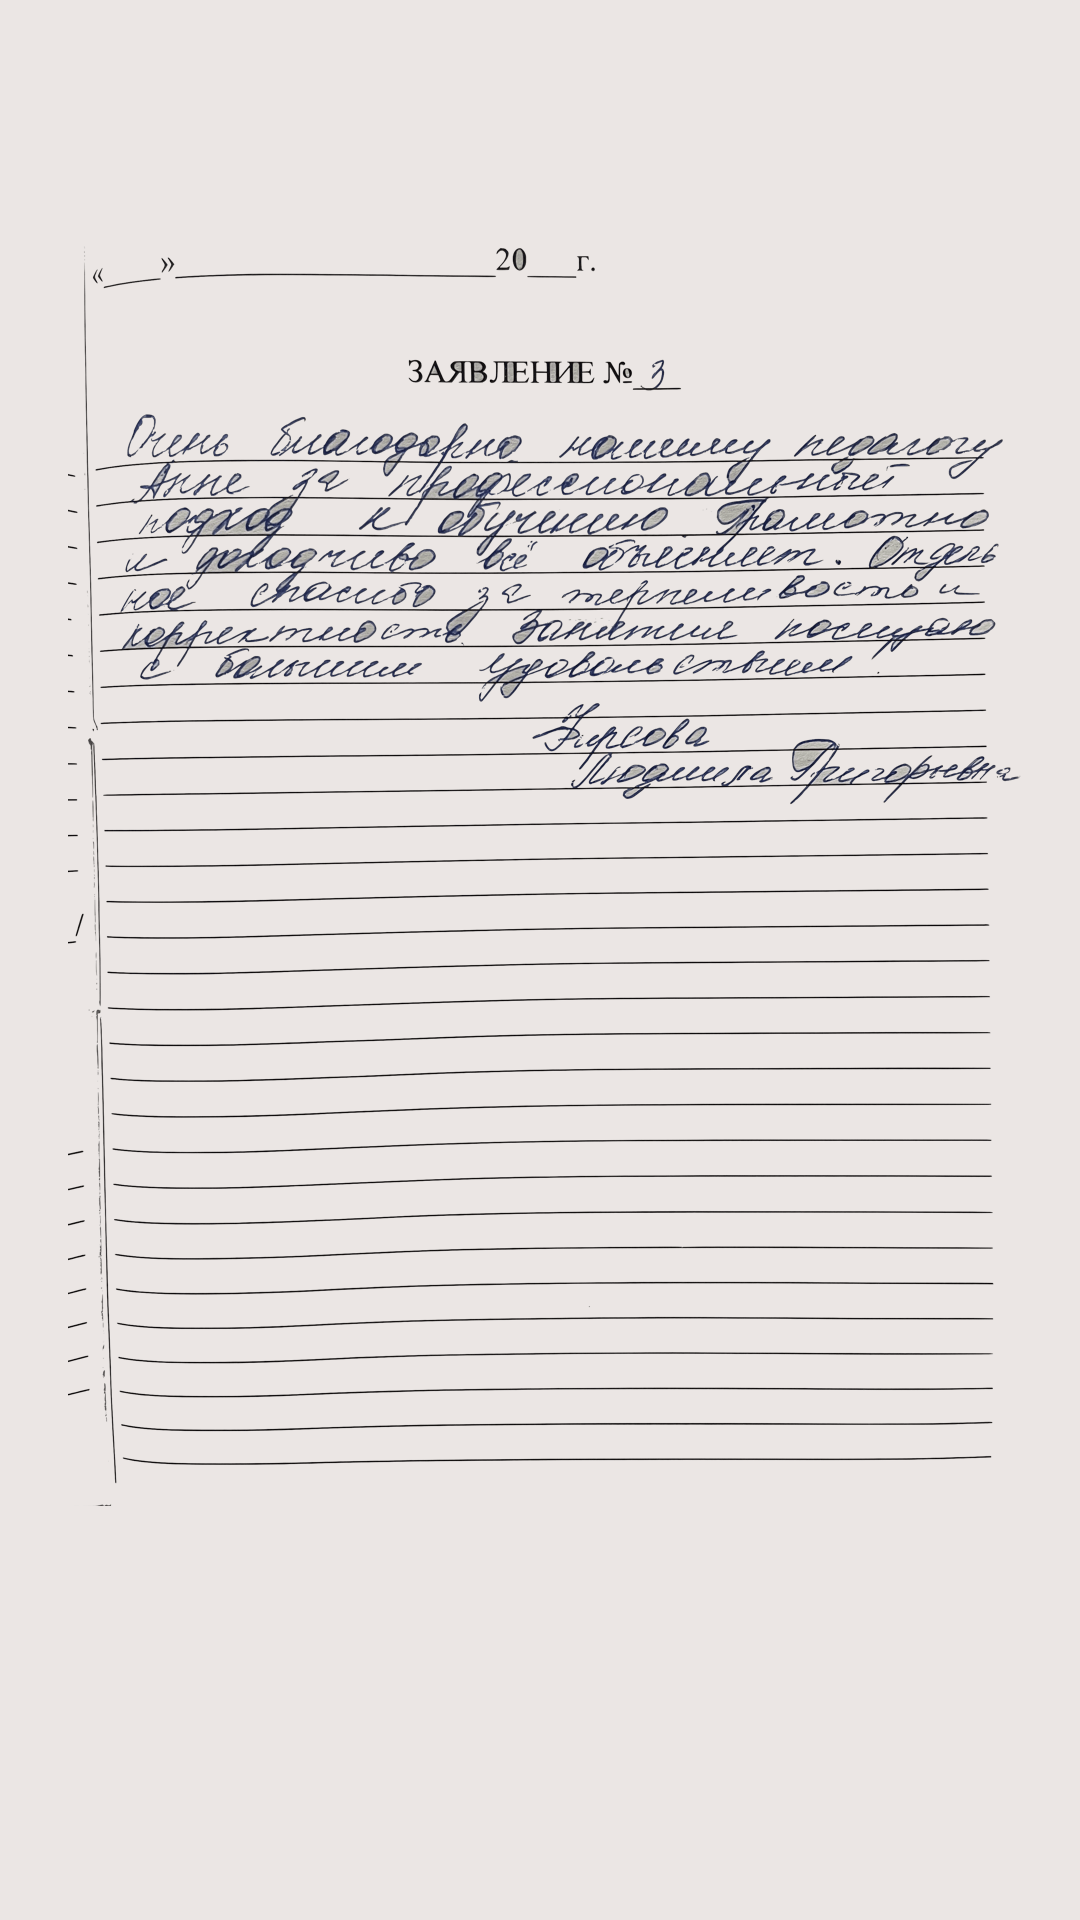 «____»____________________20___г.
ЗАЯВЛЕНИЕ № 3
Очень благодарна нашему педагогу
Анне за профессиональный
подход к обучению Грамотно
и доходчиво всё объясняет. Отдель
ное спасибо за терпеливость и
корректность. Занятия посещаю
с большим удовольствием.
Фирсова
Людмила Григорьевна